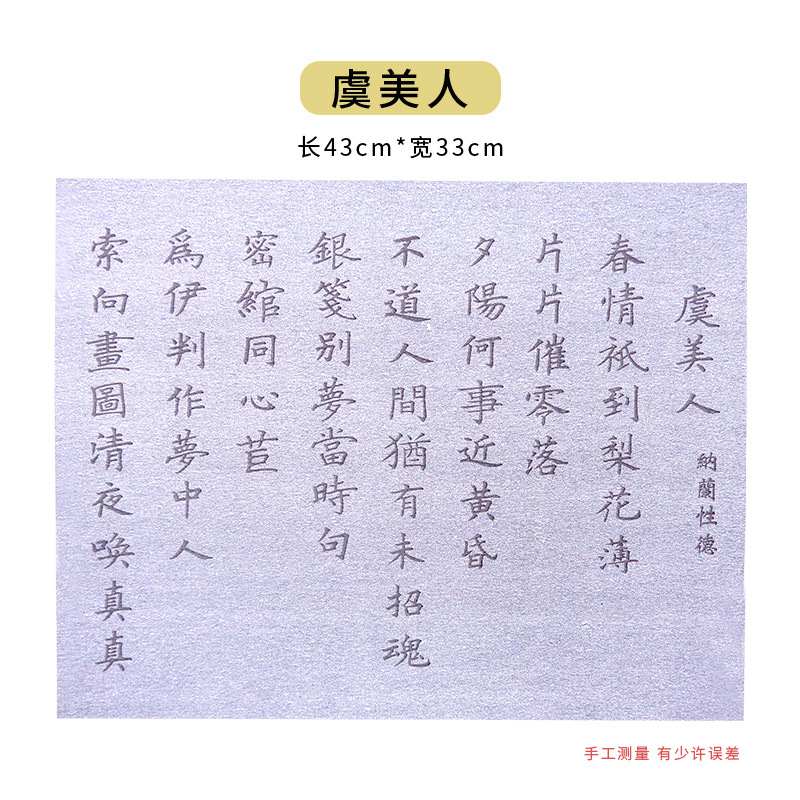 虞美人
长43cm*宽33cm
虞美人
納蘭性德
春情祇到梨花薄
片片催零落
夕陽何事近黃昏
不道人間猶有未招魂
銀箋别夢當時句
密綰同心苣
爲伊判作夢中人
索向畫圖清夜喚真真
手工测量 有少许误差